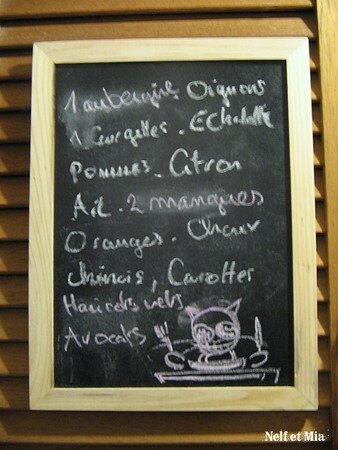 1 aubergine. Oignons
1 Courgettes. Echalotte
Pommes. Citron
Ail. 2 mangues
Oranges. Choux
chinois, Carottes
Haricots verts
Avocats
Nelf et Mia